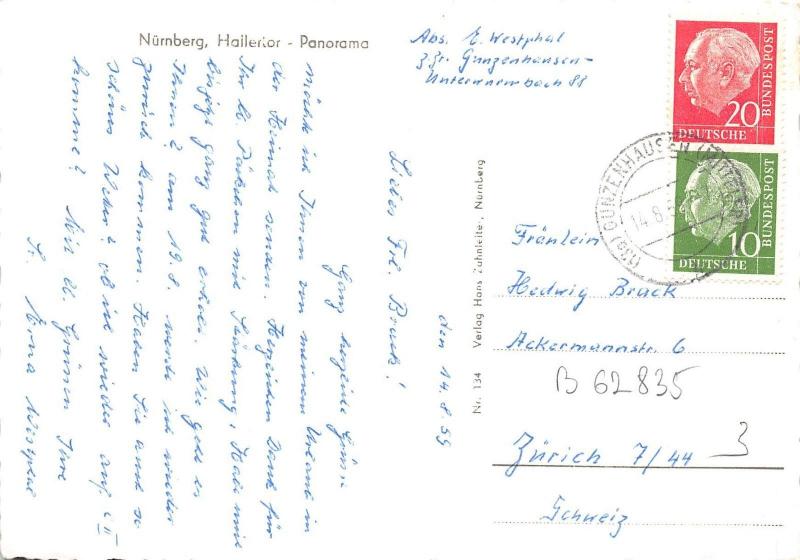 Nürnberg, Hallertor - Panorama
Abs. E. Westphal
z.Zt. Gunzenhausen-
Unterwurmbach 88
20
DEUTSCHE
BUNDESPOST
10
DEUTSCHE
BUNDESPOST
GUNZENHAUSEN
14.8.
Nr. 134 Verlag Hans Zahnleiter, Nürnberg
Fräulein
Hedwig Bruck
Ackermannstr. 6
B 62835
Zürich 7/44
3
Schweiz
den 14.8.59
Liebes Frl. Bruck!
Ganz herzliche Grüsse
möchte ich Ihnen von meinem Urlaub in
der Heimat senden. Herzlichen Dank für
Ihr lb. Päckchen mit Stärkung. Habe mich
bis jetzt ganz gut erholt. Wie geht es
Ihnen? am 19.8. werde ich wieder
zurück kommen. Haben Sie auch so
schönes Wetter? ob ich wieder auf II
komme? Mit lb. Grüssen Ihre
Sr. Erna Westphal